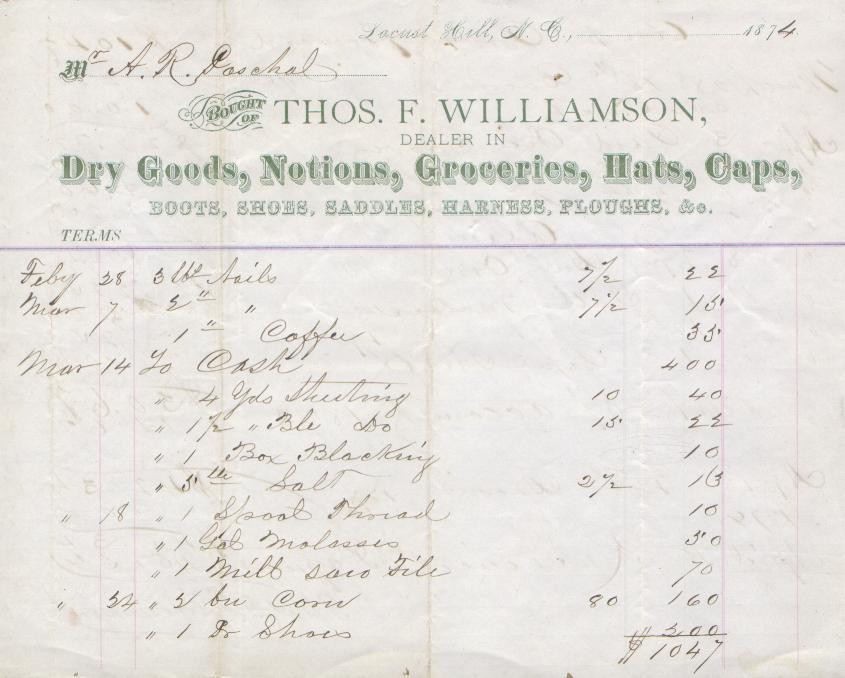 Locust Hill, N. C., 1874
Mr A. R. Paschal
BOUGHT OF THOS. F. WILLIAMSON,
DEALER IN
Dry Goods, Notions, Groceries, Hats, Caps,
BOOTS, SHOES, SADDLES, HARNESS, PLOUGHS, &c.
TERMS
Feby 28 3 lbs Nails 7½ 22
Mar 7 2 " " 7½ 15
1 " Coffee 35
Mar 14 To Cash 400
" 4 Yds Sheeting 10 40
" 1½ " Ble Do 15 22
" 1 Box Blacking 10
" 5 lbs Salt 2½ 13
" 18 " 1 Spool Thread 10
" 1 Gal Molasses 50
" 1 Mill saw File 70
" 24 " 2 bu Corn 80 160
" 1 Pr Shoes " 200
$ 1047